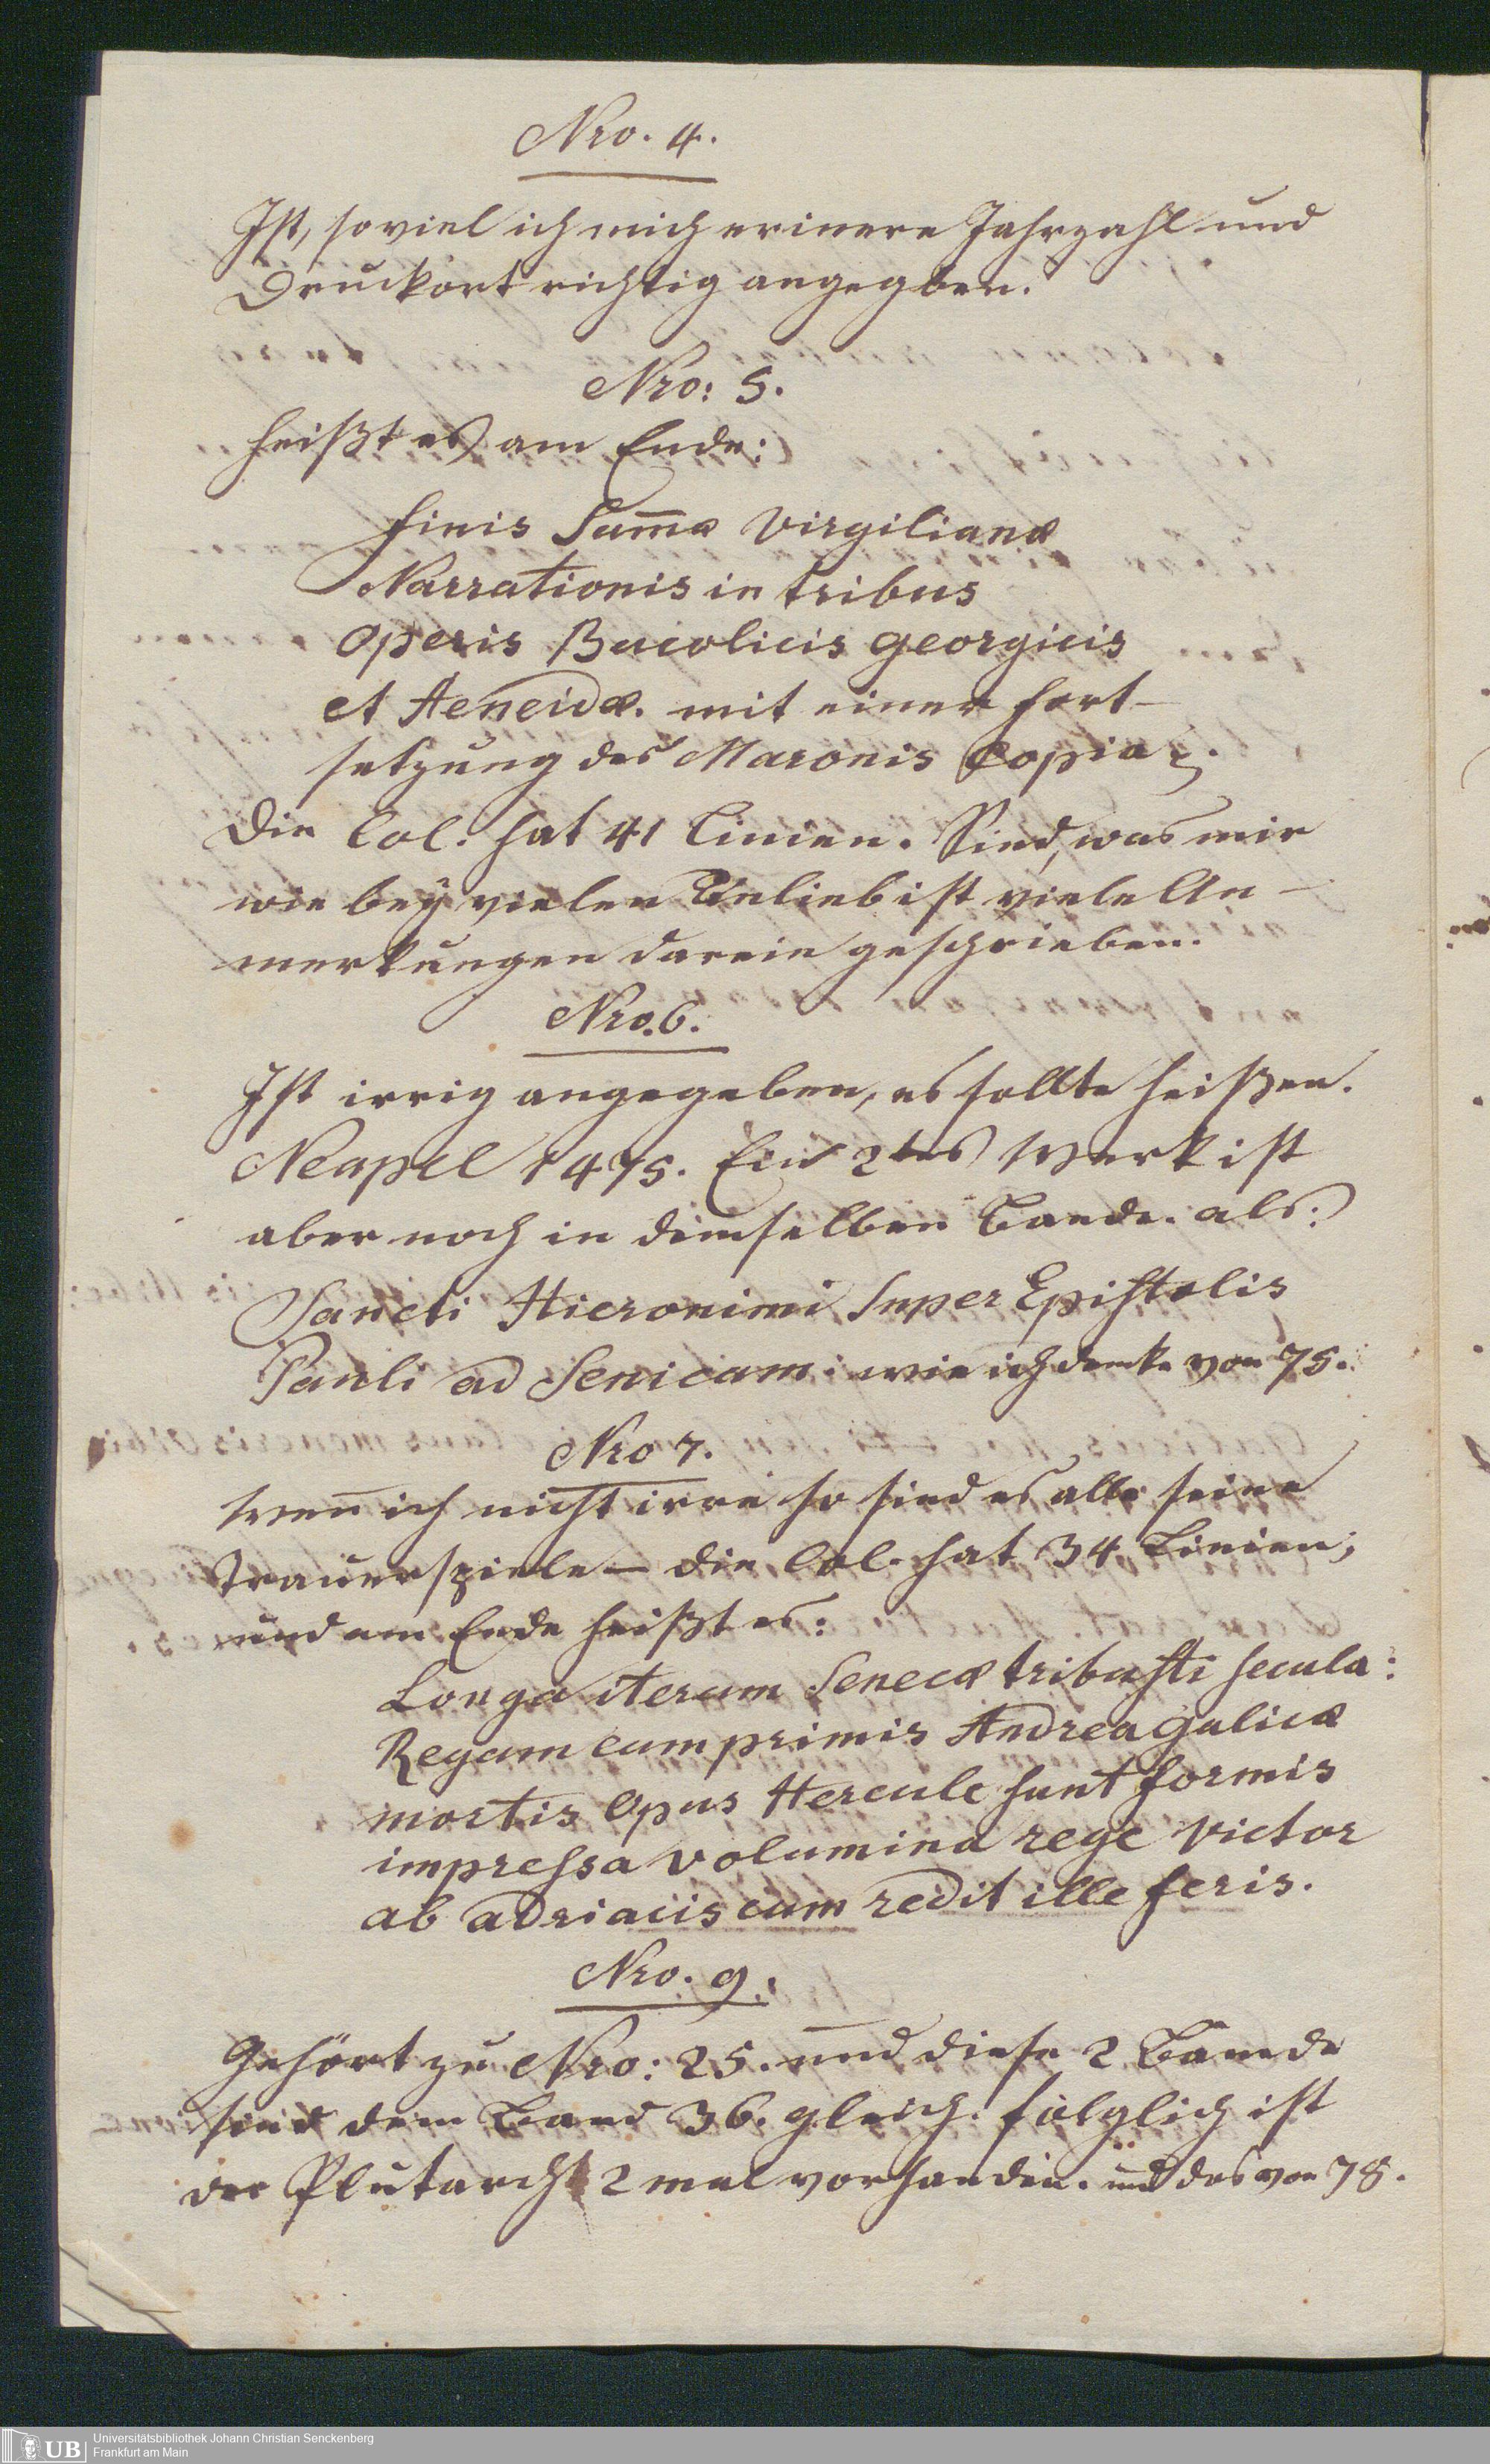 Nro. 4.
Ist, soviel ich mich erinere Jahrzahl und
Druckort richtig angegben.
Nro: 5.
heißt es am Ende:
finis Sum̄æ Virgilianæ
Narrationis in tribus
operis Bucolicis georgicis
et Aeneidæ. mit einer fort-
setzung des Maronis Copia
Die Col. hat 41 Linien. Sind, was mir
wie bey vielen Unlieb ist viele An-
merkungen darein geschrieben.
Nro. 6.
Ist irrig angegeben, es sollte heißen.
Neapel 1475. Ein 2tes Werk ist
aber noch in demselben Bande. als:
Sancti Hieronimi Super Epistolis
Pauli ad Senicam. wie ich denke von 75.
Nro 7.
Wen̄ ich nicht irre so sind es alle seine
Trauerspiele – die Col. hat 34 Linien;
und am Ende heißt es:
Longa iterum Senecæ tribusti secula:
Regum cum primis Andrea galicæ
mortis Opus Hercule sunt formis
impressa volumina rege victor
ab adriaciis cum redit ille feris.
Nro. 9.
Gehört zu Nro: 25. und diese 2 Baende
sind dem Band 36. gleich. folglich ist
der Plutarch 2 mal vorhanden. und das von 78.
Universitätsbibliothek Johann Christian Senckenberg
Frankfurt am Main
UB